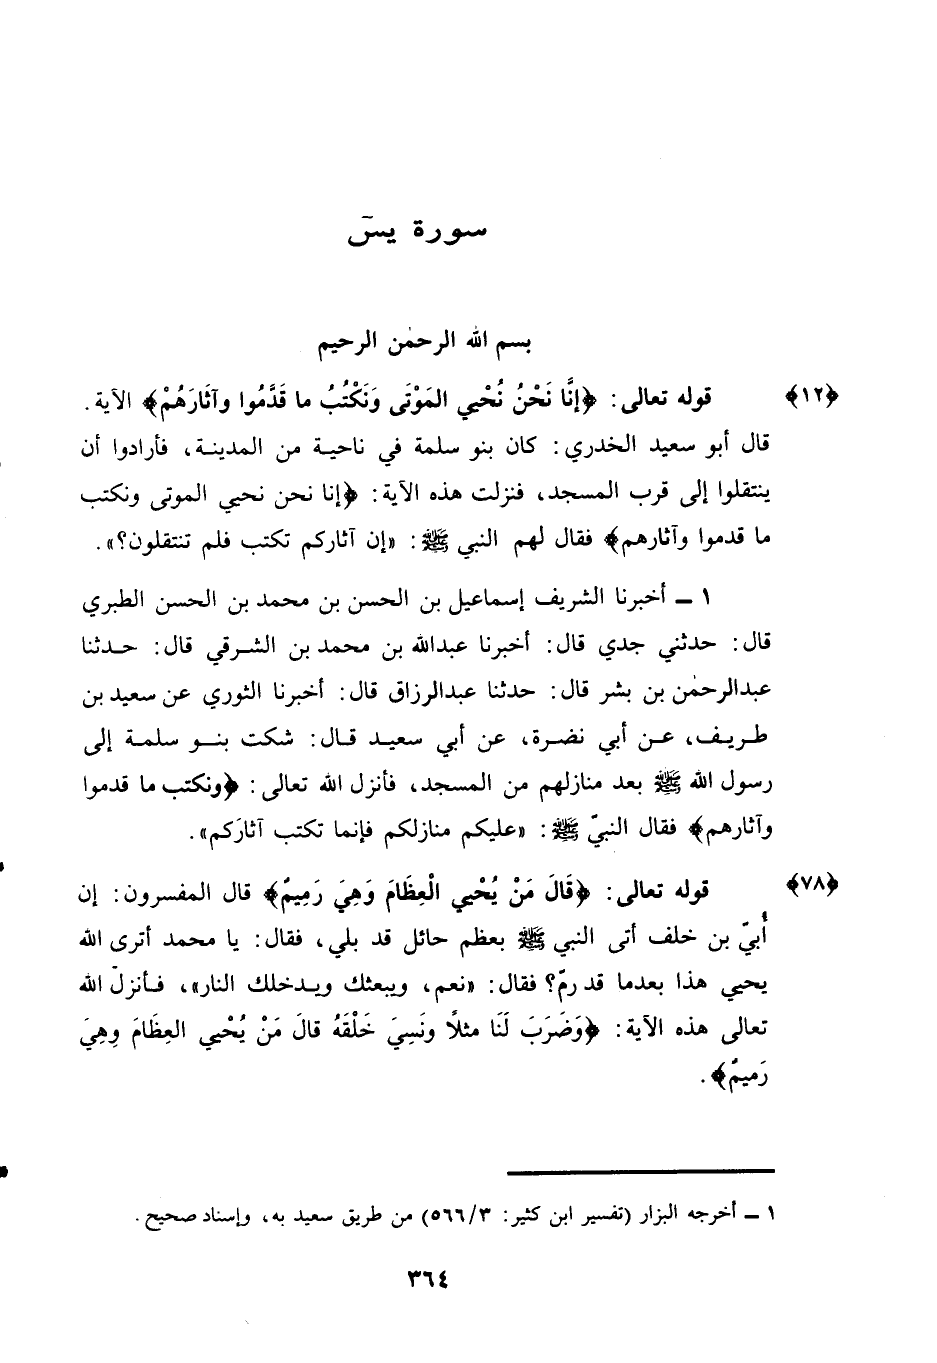 سورة يسٓ
بسم الله الرحمٰن الرحيم
﴿١٢﴾ قوله تعالى: ﴿إنَّا نَحْنُ نُحْيي المَوْتَى وَنَكْتُبُ ما قَدَّمُوا وآثَارَهُمْ﴾ الآية.
قال أبو سعيد الخدري: كان بنو سلمة في ناحية من المدينة، فأرادوا أن
ينتقلوا إلى قرب المسجد، فنزلت هذه الآية: ﴿إنا نحن نحيي الموتى ونكتب
ما قدموا وآثارهم﴾ فقال لهم النبي ﷺ: «إن آثاركم تكتب فلم تنتقلون؟».
١ ــ أخبرنا الشريف إسماعيل بن الحسن بن محمد بن الحسن الطبري
قال: حدثني جدي قال: أخبرنا عبدالله بن محمد بن الشرقي قال: حدثنا
عبدالرحمٰن بن بشر قال: حدثنا عبدالرزاق قال: أخبرنا الثوري عن سعيد بن
طريف، عن أبي نضرة، عن أبي سعيد قال: شكت بنو سلمة إلى
رسول الله ﷺ بعد منازلهم من المسجد، فأنزل الله تعالى: ﴿ونكتب ما قدموا
وآثارهم﴾ فقال النبيّ ﷺ: «عليكم منازلكم فإنما تكتب آثارَكم».
﴿٧٨﴾ قوله تعالى: ﴿قَالَ مَنْ يُحْيي الْعِظَامَ وَهِيَ رَمِيمٌ﴾ قال المفسرون: إن
أُبيّ بن خلف أتى النبي ﷺ بعظم حائل قد بلي، فقال: يا محمد أترى الله
يحيي هذا بعدما قد رمّ؟ فقال: «نعم، ويبعثك ويدخلك النار»، فأنزل الله
تعالى هذه الآية: ﴿وَضَرَبَ لَنَا مثلاً ونَسِيَ خَلْقَهُ قالَ مَنْ يُحْيي العِظَامَ وهِيَ
رَميمٌ﴾.
١ ــ أخرجه البزار (تفسير ابن كثير: ٥٦٦/٣) من طريق سعيد به، وإسناد صحيح.
٣٦٤